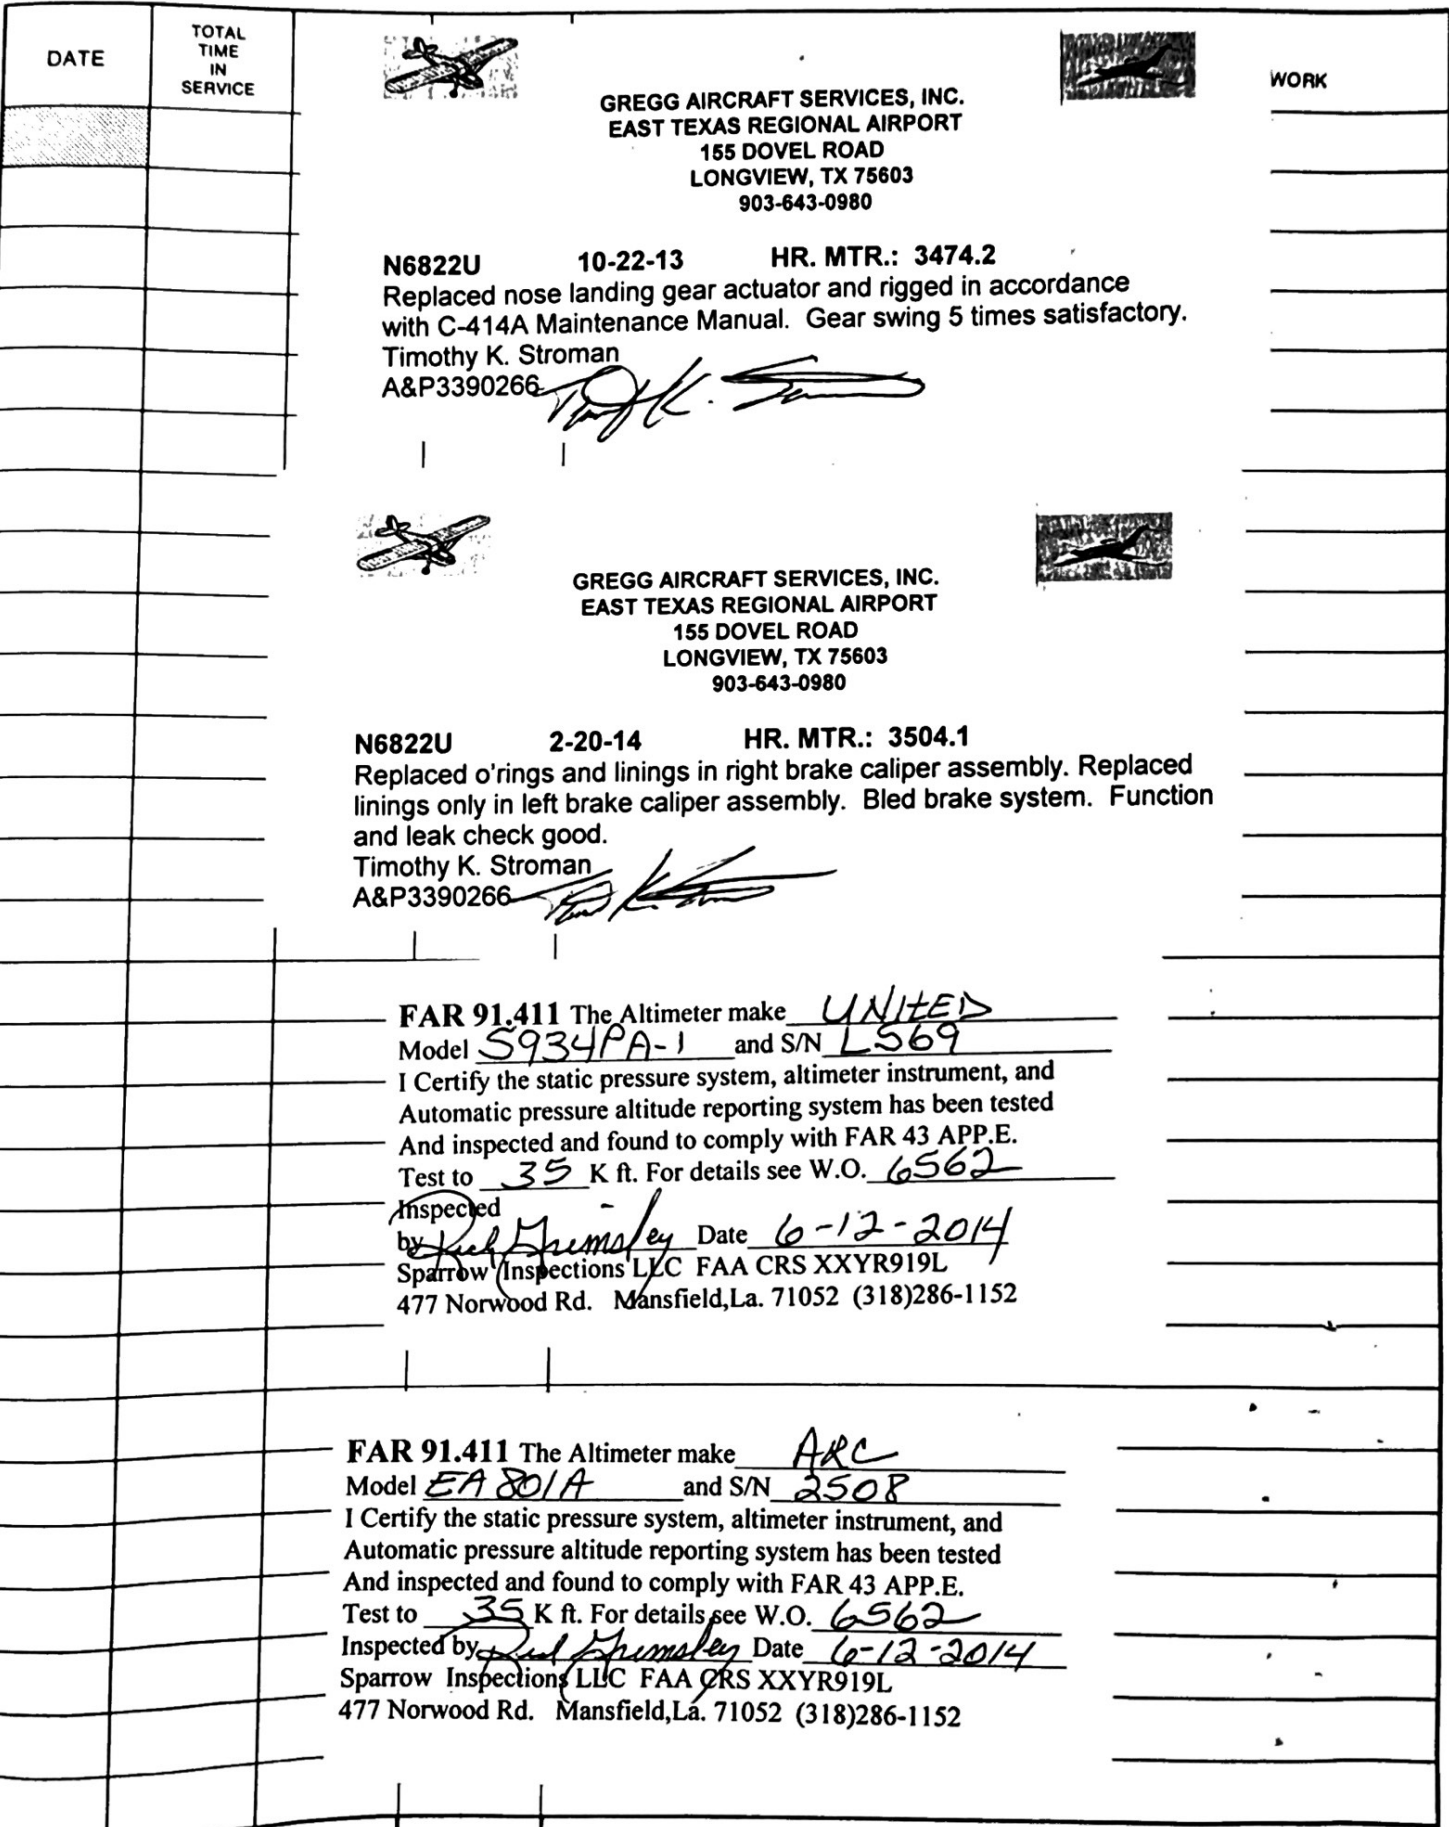 DATE
TOTAL
TIME
IN
SERVICE
WORK
GREGG AIRCRAFT SERVICES, INC.
EAST TEXAS REGIONAL AIRPORT
155 DOVEL ROAD
LONGVIEW, TX 75603
903-643-0980
N6822U 10-22-13 HR. MTR.: 3474.2
Replaced nose landing gear actuator and rigged in accordance
with C-414A Maintenance Manual. Gear swing 5 times satisfactory.
Timothy K. Stroman
A&P3390266
GREGG AIRCRAFT SERVICES, INC.
EAST TEXAS REGIONAL AIRPORT
155 DOVEL ROAD
LONGVIEW, TX 75603
903-643-0980
N6822U 2-20-14 HR. MTR.: 3504.1
Replaced o'rings and linings in right brake caliper assembly. Replaced
linings only in left brake caliper assembly. Bled brake system. Function
and leak check good.
Timothy K. Stroman
A&P3390266
FAR 91.411 The Altimeter make UNITED
Model 5934PA-1 and S/N L569
I Certify the static pressure system, altimeter instrument, and
Automatic pressure altitude reporting system has been tested
And inspected and found to comply with FAR 43 APP.E.
Test to 35 K ft. For details see W.O. 6562
Inspected
by Rick Grimsley Date 6-12-2014
Sparrow Inspections LLC FAA CRS XXYR919L
477 Norwood Rd. Mansfield,La. 71052 (318)286-1152
FAR 91.411 The Altimeter make ARC
Model EA801A and S/N 2508
I Certify the static pressure system, altimeter instrument, and
Automatic pressure altitude reporting system has been tested
And inspected and found to comply with FAR 43 APP.E.
Test to 35 K ft. For details see W.O. 6562
Inspected by Rick Grimsley Date 6-12-2014
Sparrow Inspections LLC FAA CRS XXYR919L
477 Norwood Rd. Mansfield,La. 71052 (318)286-1152